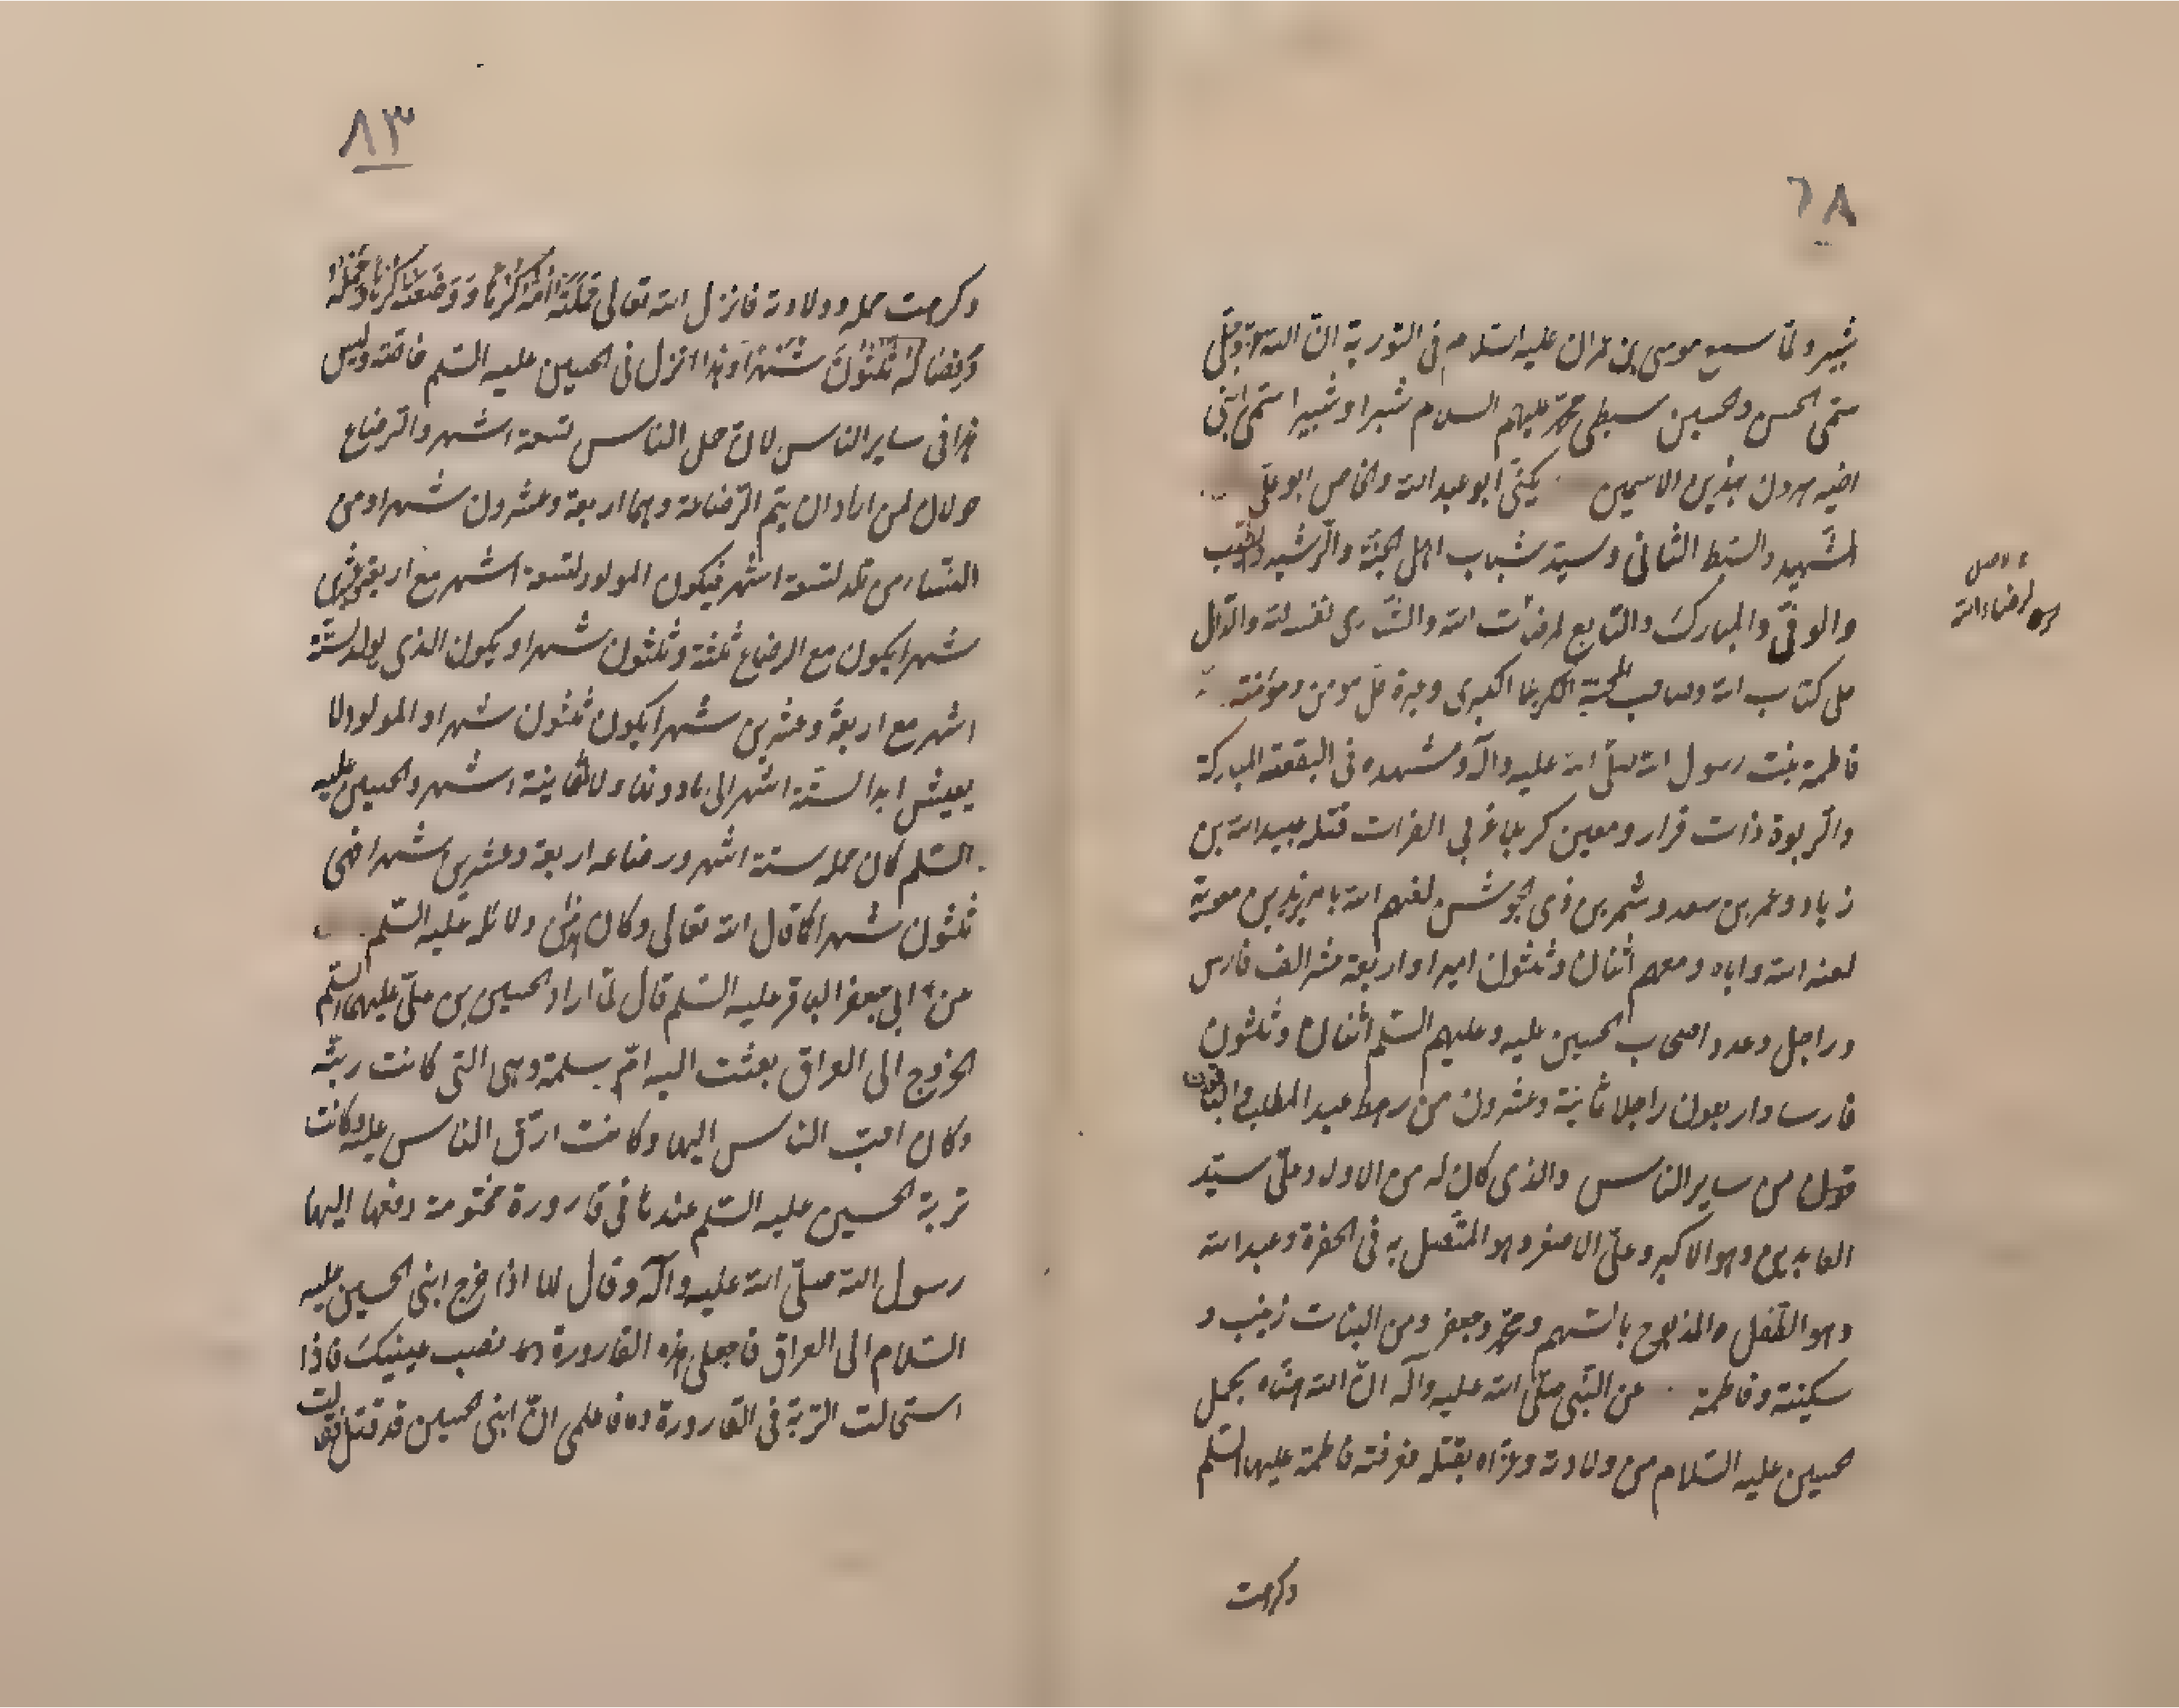 ٦٨
شبير ولما سمع موسى بن عمران عليه السلام في التورية ان الله عز وجل
سمى الحسن والحسين سبطى محمد عليهم السلام شبرا وشبيرا سمى ابنى
اخيه هرون بهذين الاسمين يكنى ابو عبد الله والخاص ابو على
الشهيد والسبط الثانى وسيد شباب اهل الجنة والرشيد والطيب
والوفى والمبارك والتابع لمرضات الله والشارى نفسه لله والدال
على كتاب الله وصاحب المحنة الكبرى وعبرة كل مومن ومؤمنة
فاطمة بنت رسول الله صلى الله عليه وآله ومشهده فى البقعة المباركة
والربوة ذات قرار ومعين كربلا غربى الفرات قتله عبيد الله بن
زياد وعمر بن سعد وشمر بن ذى الجوشن لعنهم الله بامر يزيد بن معوية
لعنه الله واباه ومعهم اثنان وثلثون اميرا واربعة عشر الف فارس
وراجل وعدد اصحاب الحسين عليه وعليهم السلم اثنان وثلثون
فارسا واربعون راجلا ثمانية وعشرون من رهط عبد المطلب والباقون
من ساير الناس والذى كان له من الاولاد على سيد
العابدين وهو الاكبر وعلى الاصغر وهو المتصل به فى الحفرة وعبد الله
وهو الطفل والمذبوح بالسهم ومحمد وجعفر ومن البنات زينب و
سكينة وفاطمة عن النبى صلى الله عليه وآله ان الله هناه بحمل
الحسين عليه السلام من ولادته وعزاه بقتله فعرفته فاطمة عليها السلم
وكرهت
لرضاء الله
٨٣
وكرهت حمله وولادته فانزل الله تعالى حَمَلَتْهُ اُمُّهُ كُرْهًا وَوَضَعَتْهُ كُرْهًا وَحَمْلُهُ
وَفِصَالُهُ ثَلٰثُونَ شَهْرًا وهذا انزل فى الحسين عليه السلم خاصة وليس
هذا فى ساير الناس لان حمل الناس تسعة اشهر والرضاع
حولان لمن اراد ان يتم الرضاعة وهما اربعة وعشرون شهرا ومن
النساء من تلد لتسعة اشهر فيكون المولود لتسعة اشهر مع اربعة وعشرين
شهرا يكون مع الرضاع ثلثة وثلثون شهرا ويكون الذى يولد لستة
اشهر مع اربعة وعشرين شهرا يكون ثلثون شهرا والمولود لا
يعيش ابدا لستة اشهر الى ما دونها ولا لثمانية اشهر والحسين عليه
السلم كان حمله ستة اشهر ورضاعه اربعة وعشرين شهرا فهى
ثلثون شهرا كما قال الله تعالى وكان هذا من دلائله عليه السلم
عن ابى جعفر الباقر عليه السلم قال لما اراد الحسين بن على عليهما السلم
الخروج الى العراق بعثت اليه ام سلمة وهى التى كانت ربته
وكان احب الناس اليها وكانت ارق الناس عليه وكانت
تربة الحسين عليه السلم عندها فى قارورة مختومة دفعها اليها
رسول الله صلى الله عليه وآله وقال لها اذا خرج ابنى الحسين عليه
السلام الى العراق فاجعلى هذه القارورة نصب عينيك فاذا
استحالت التربة فى القارورة دما فاعلمى ان ابنى الحسين قد قتل فقالت